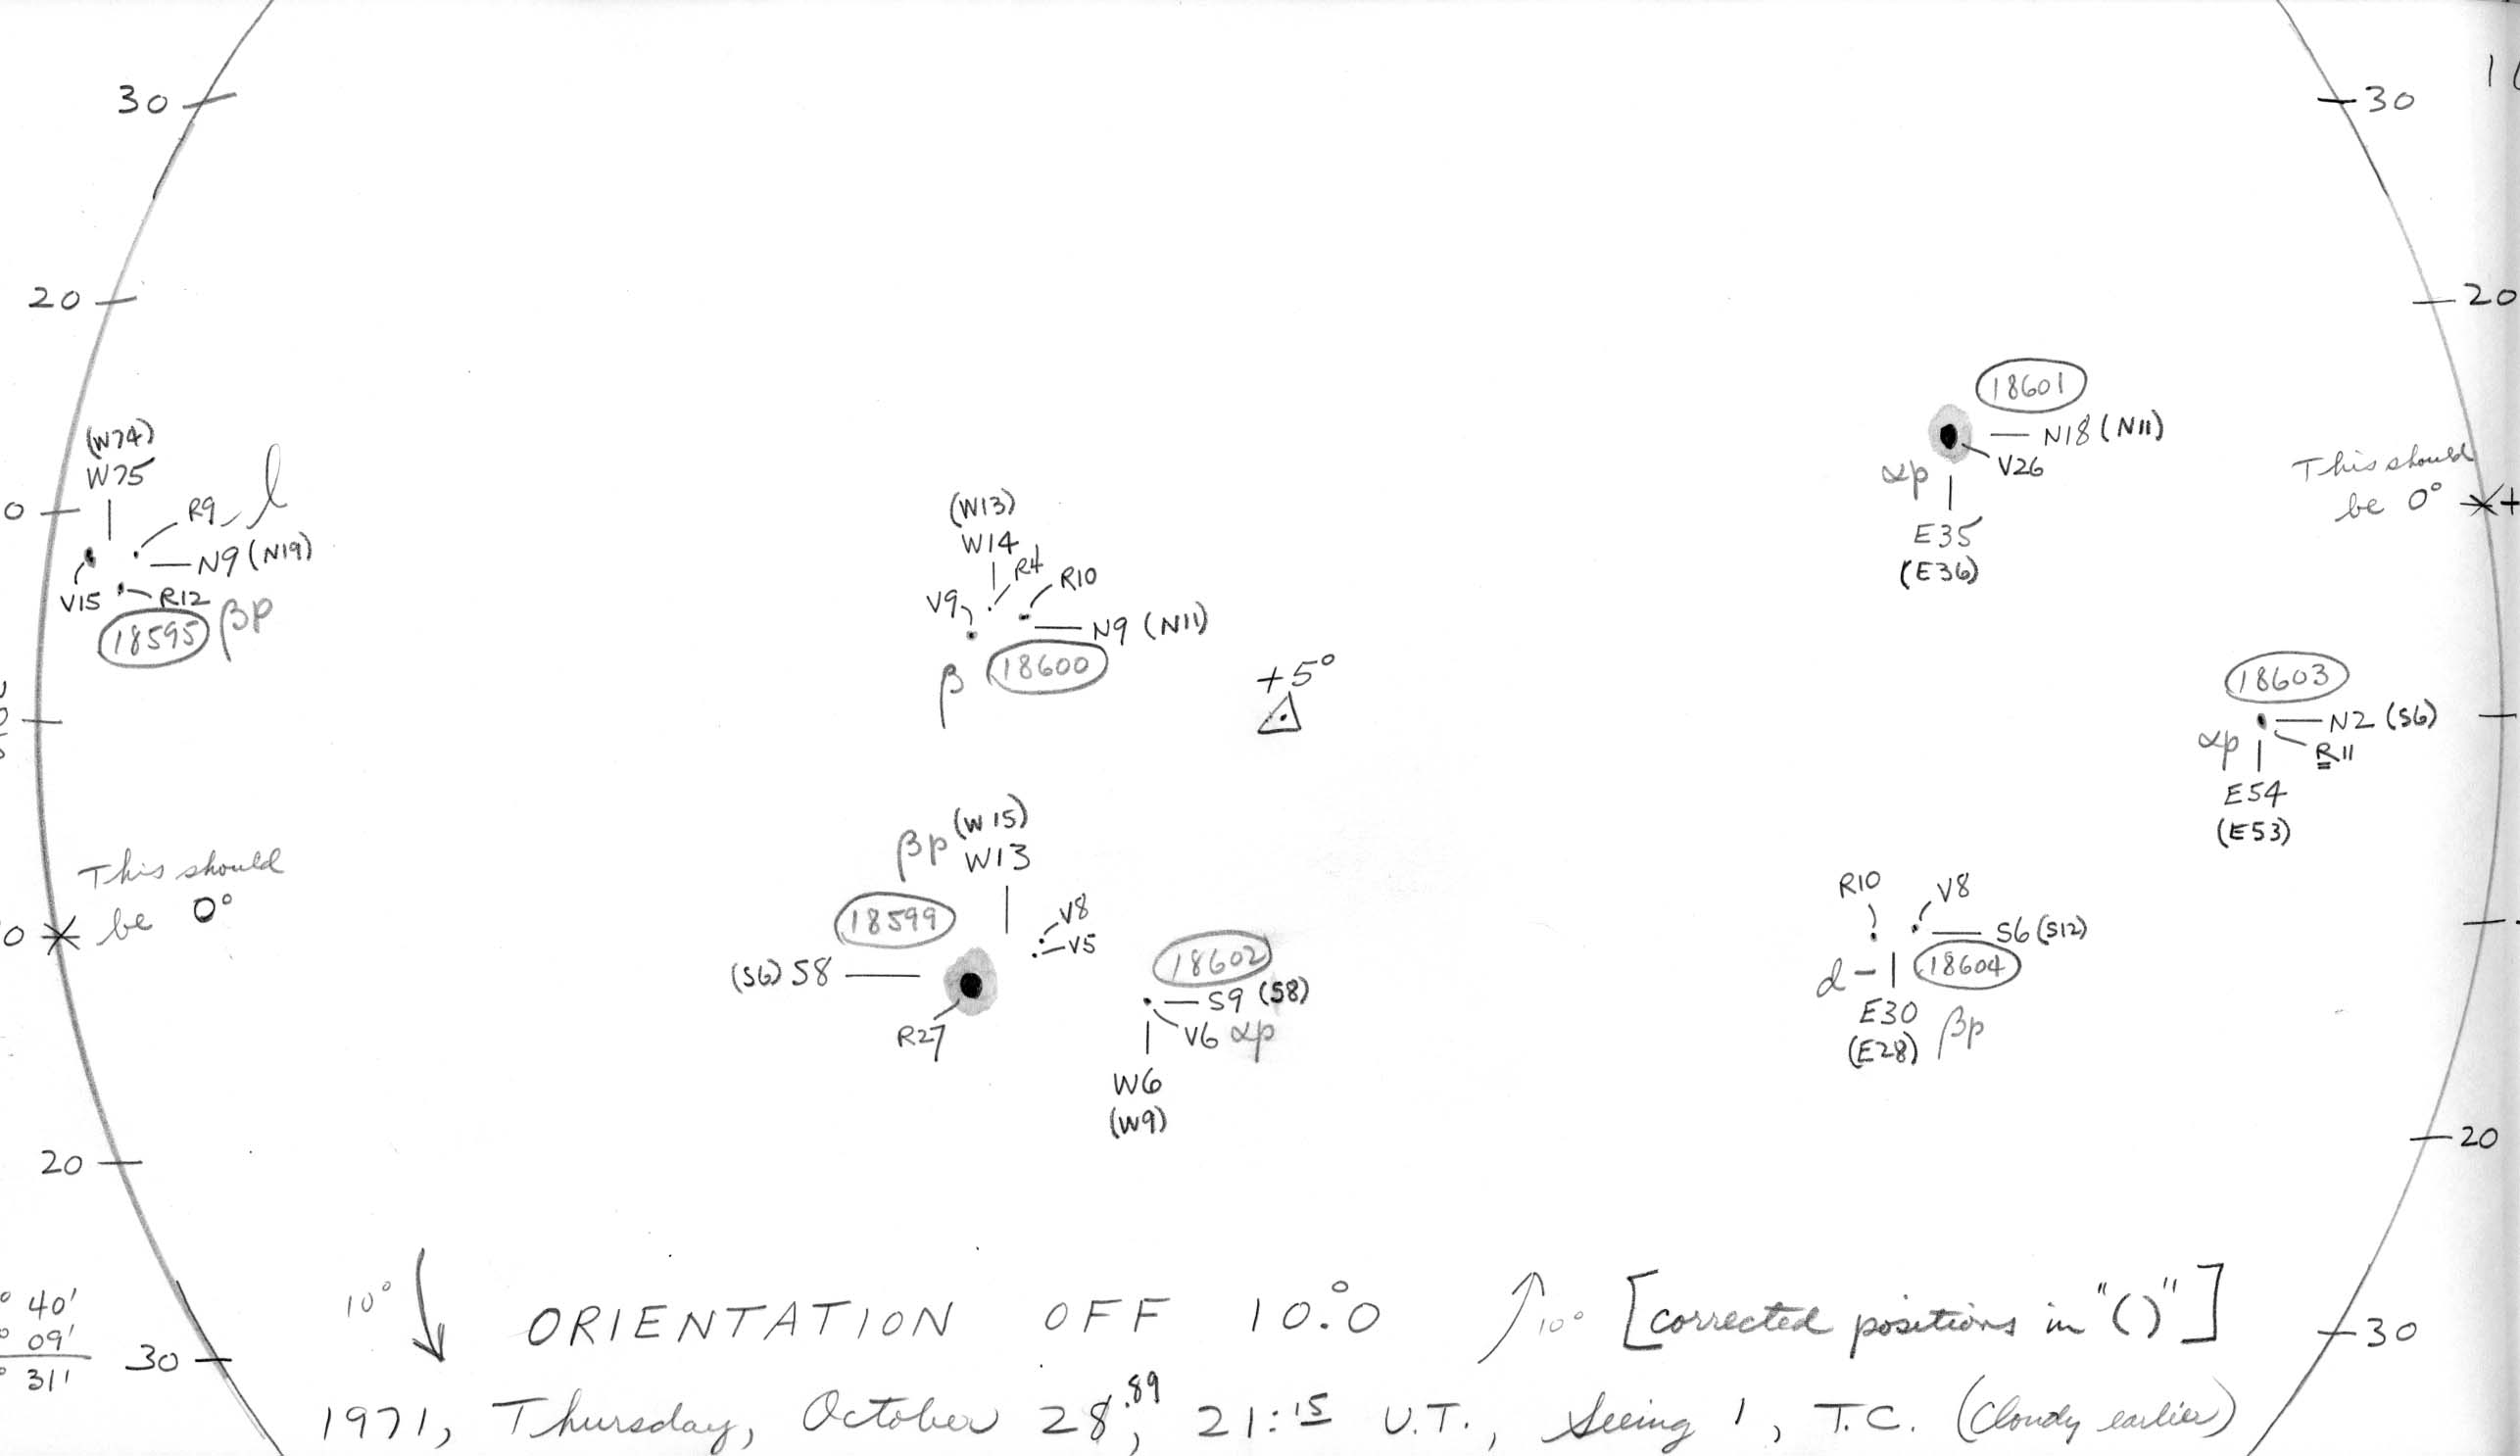 30
30
20
20
18601
N18 (N11)
V26
αp
E35
(E36)
(W74)
W75
R9
l
N9 (N19)
V15
R12
18595
βp
0
This should
be 0°
+
(W13)
W14
R4
R10
V9
N9 (N11)
β
18600
+5°
18603
N2 (S6)
R11
αp
E54
(E53)
This should
be 0°
0
βp
(W15)
W13
18599
V8
V5
(S6) S8
R27
18602
S9 (S8)
V6 αp
W6
(W9)
R10
V8
S6 (S12)
d
18604
E30
(E28)
βp
20
20
40'
09'
31'
30
30
10° ORIENTATION OFF 10.°0 10° [corrected positions in "()"]
1971, Thursday, October 28.89, 21:15 U.T., Seeing 1, T.C. (Cloudy earlier)